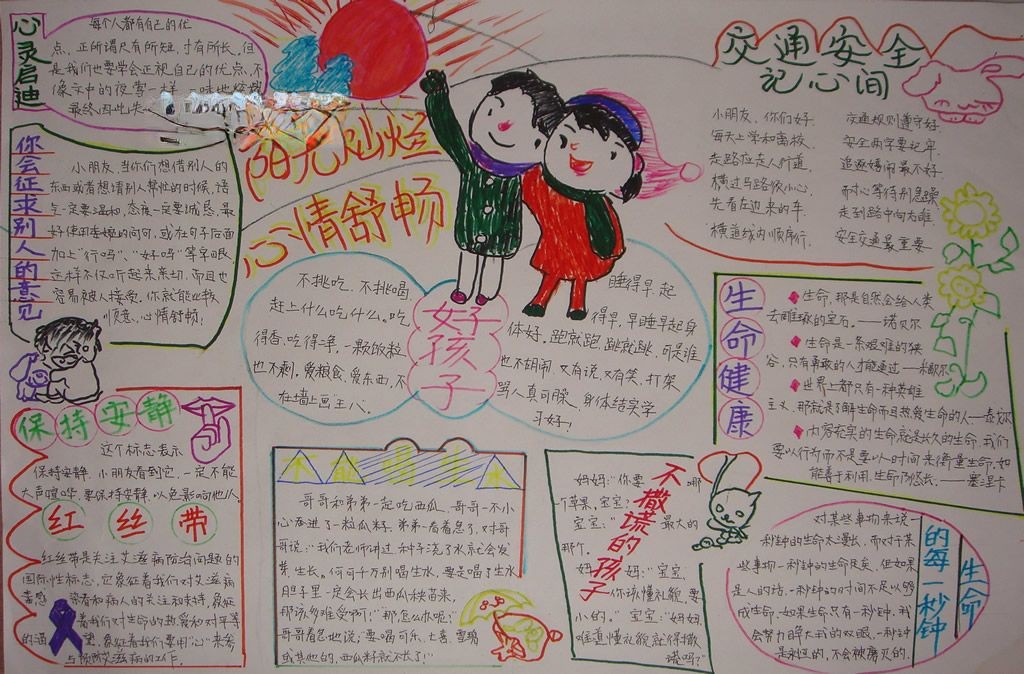 心灵启迪
每个人都有自己的优
点,正所谓尺有所短,寸有所长,但
是我们也要学会正视自己的优点,不
像文中的夜莺一样,一味地
最终因此失
你会征求别人的意见
小朋友,当你们想借别人的
东西或者想请别人帮忙的时候,语
气一定要温和,态度一定要诚恳,最
好使用委婉的问句,或在句子后面
加上“行吗”、“好吗”等字眼,
这样不仅听起来亲切,而且也
容易被人接受,你就能也拔
顺意,心情舒畅!
阳光灿烂
心情舒畅
交通安全
记心间
小朋友,你们好
每天上学和离校,
走路应走人行道,
横过马路依小心,
先看左边来的车,
横道线内顺序行,
交通规则遵守好
安全两字要记牢
追逐嬉闹最不好
耐心等待别急躁
走到路中向右瞧
安全交通最重要
好孩子
不挑吃,不挑喝,
赶上什么吃什么。吃
得香,吃得净,一颗饭粒
也不剩。爱粮食,爱东西,不
在墙上画王八。
睡得早,起
得早,早睡早起身
体好。跑就跑,跳就跳,可是谁
也不胡闹,又有说,又有笑,打架
骂人真可臊,身体结实学
习好!
生命健康
生命,那是自然会给人类
去雕琢的宝石。——诺贝尔
生命是一条艰难的狭
谷,只有勇敢的人才能通过——米歇尔
世界上都只有一种英雄
主义,那就是了解生命而且热爱生命的人——
内容充实的生命就是长久的生命,我们
要以行为而不是要以时间来衡量生命,如
能善于利用,生命乃悠长。——塞涅卡
保持安静
这个标志表示
保持安静,小朋友看到它,一定不能
大声喧哗,要保持安静,以免影响他人。
红丝带
红丝带是关注艾滋病防治问题的
国际性标志,它象征着我们对艾滋病
毒感染者和病人的关注和支持,象征
着我们对生命的热爱和对平等
的渴望,象征着我们要用“心”来参
与预防艾滋病的工作。
不能喝生水
哥哥和弟弟一定吃西瓜,哥哥一不小
心吞进了一粒瓜籽,弟弟一看着急了,对哥
哥说:“我们老师讲过,种子浇了水就会发
芽,生长。你可千万别喝生水,要是喝了生水,
肚子里一定会长出西瓜秧苗来,
那该多难受啊!”“那怎么办呢?”
哥哥着急也说:“要喝可乐、七喜、雪碧
或其他的,西瓜籽就不长了!”
不撒谎的孩子
妈妈:“你要哪
个苹果,宝宝?”
宝宝:“最大的
那个。”
妈妈:“宝宝,
你该懂礼貌,要
小的。”宝宝:“妈妈,
难道懂礼貌就得撒
谎吗?”
生命的每一秒钟
对某些事物来说,一
秒钟的生命太漫长,而对于某
些事物一秒钟的生命很短,但如果
是人的话,一秒钟的时间不足以够
成生命,如果生命只有一秒钟,我
会努力睁大我的双眼,一秒钟
是永恒的,不会被磨灭的。